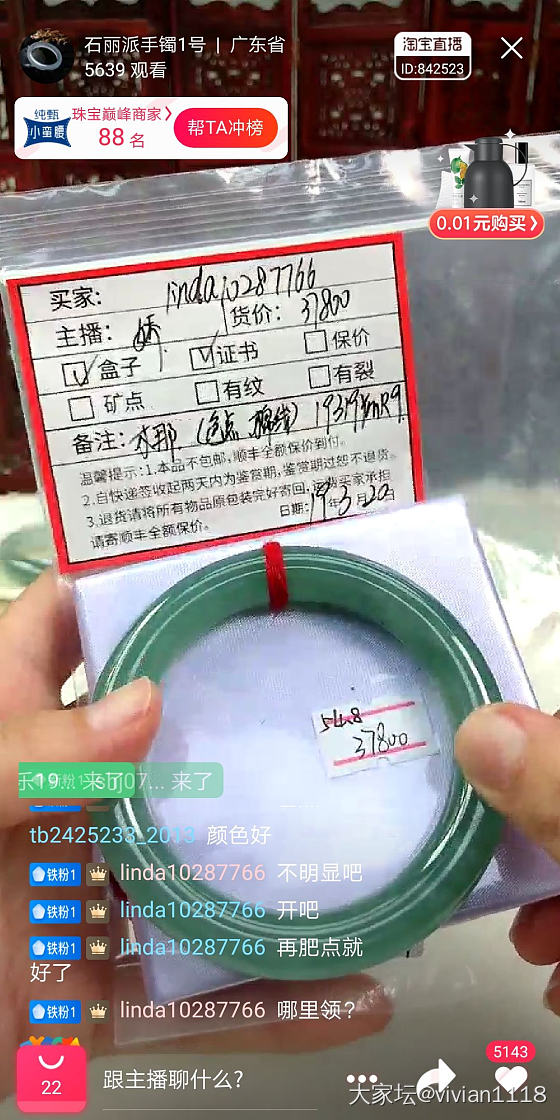 石丽派手镯1号 | 广东省
5639 观看
淘宝直播
ID:842523
纯甄
小蛮腰
珠宝巅峰商家
88 名
帮TA冲榜
0.01元购买
买家: linda10287766
主播: 娇 货价: 37800
盒子 证书 保价
矿点 有纹 有裂
备注: 木那
温馨提示:1.本品不包邮,顺丰全额保价到付。
2.自快递签收起两天内为鉴赏期,鉴赏期过恕不退货。
3.退货请将所有物品原包装完好寄回,运费买家承担
请寄顺丰全额保价。 日期: 19年3月20日
54.8
37800
来了
07... 来了
tb2425233_2013 颜色好
铁粉1 linda10287766 不明显吧
铁粉1 linda10287766 开吧
铁粉1 linda10287766 再肥点就
好了
铁粉1 linda10287766 哪里领?
22
跟主播聊什么?
5143
大家坛@vivian1118